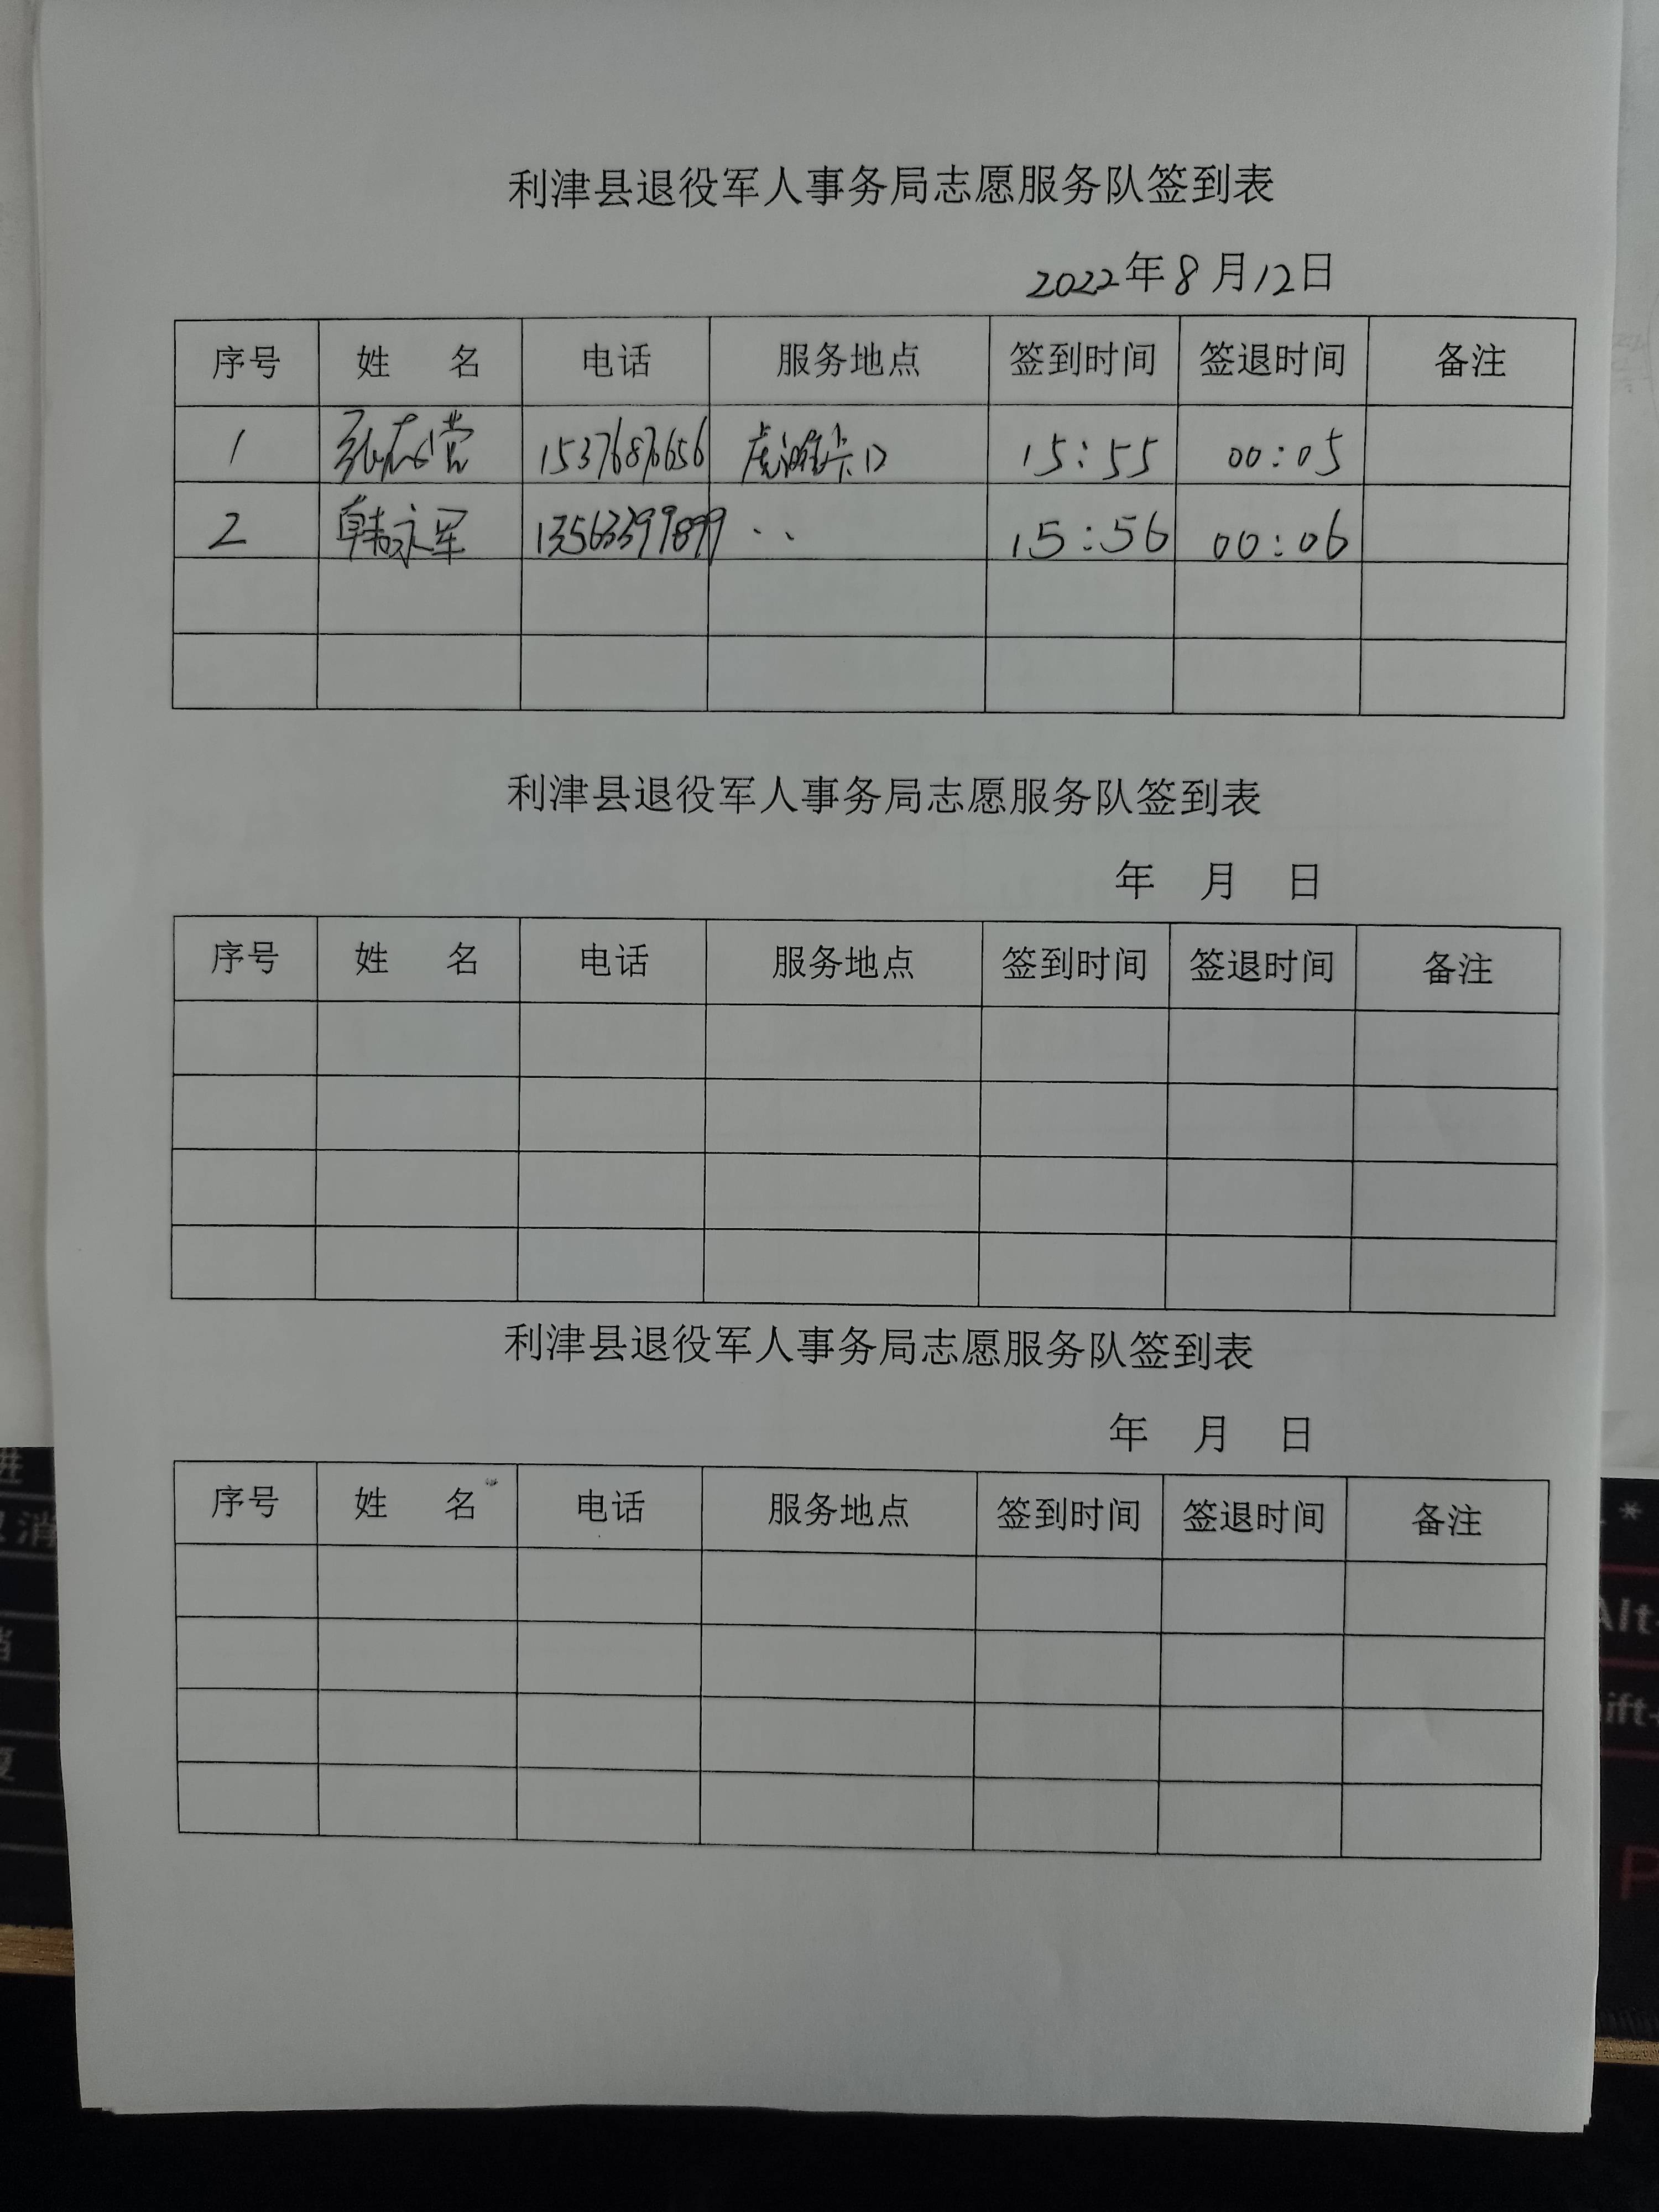 利津县退役军人事务局志愿服务队签到表
2022年8月12日
序号 姓 名 电话 服务地点 签到时间 签退时间 备注
1 15376876656 虎滩卡口 15:55 00:05
2 韩永军 13563399899 〃 15:56 00:06
利津县退役军人事务局志愿服务队签到表
年 月 日
序号 姓 名 电话 服务地点 签到时间 签退时间 备注
利津县退役军人事务局志愿服务队签到表
年 月 日
序号 姓 名 电话 服务地点 签到时间 签退时间 备注